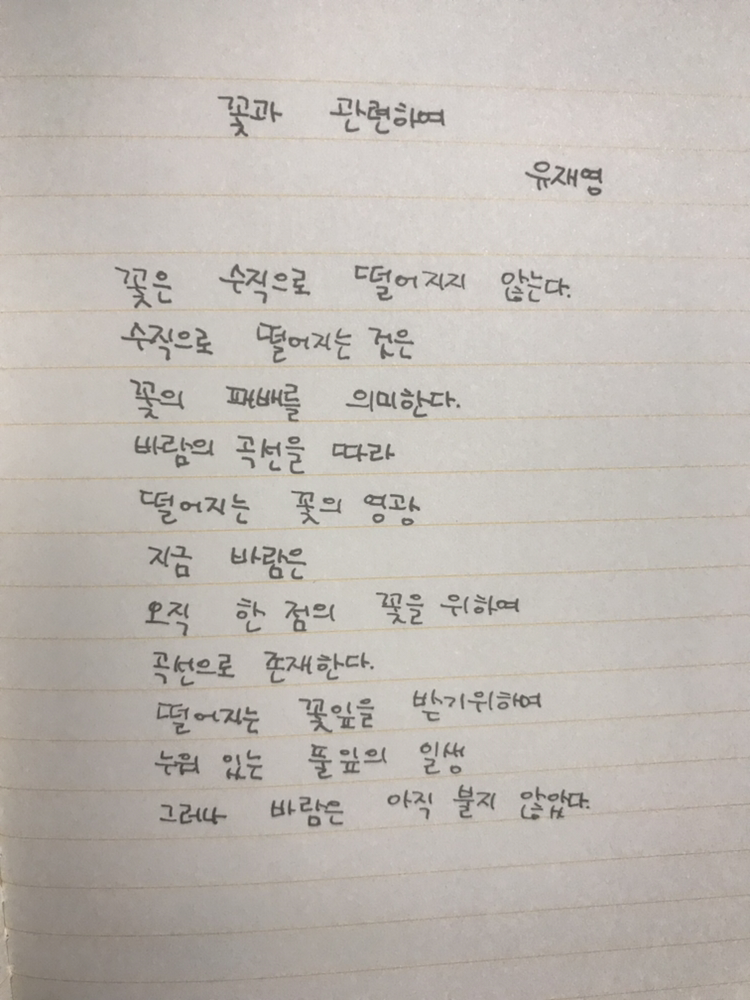 꽃과 관련하여
유재영
꽃은 수직으로 떨어지지 않는다.
수직으로 떨어지는 것은
꽃의 패배를 의미한다.
바람의 곡선을 따라
떨어지는 꽃의 영광
지금 바람은
오직 한 점의 꽃을 위하여
곡선으로 존재한다.
떨어지는 꽃잎을 받기위하여
누워 있는 풀잎의 일생
그러나 바람은 아직 불지 않았다.